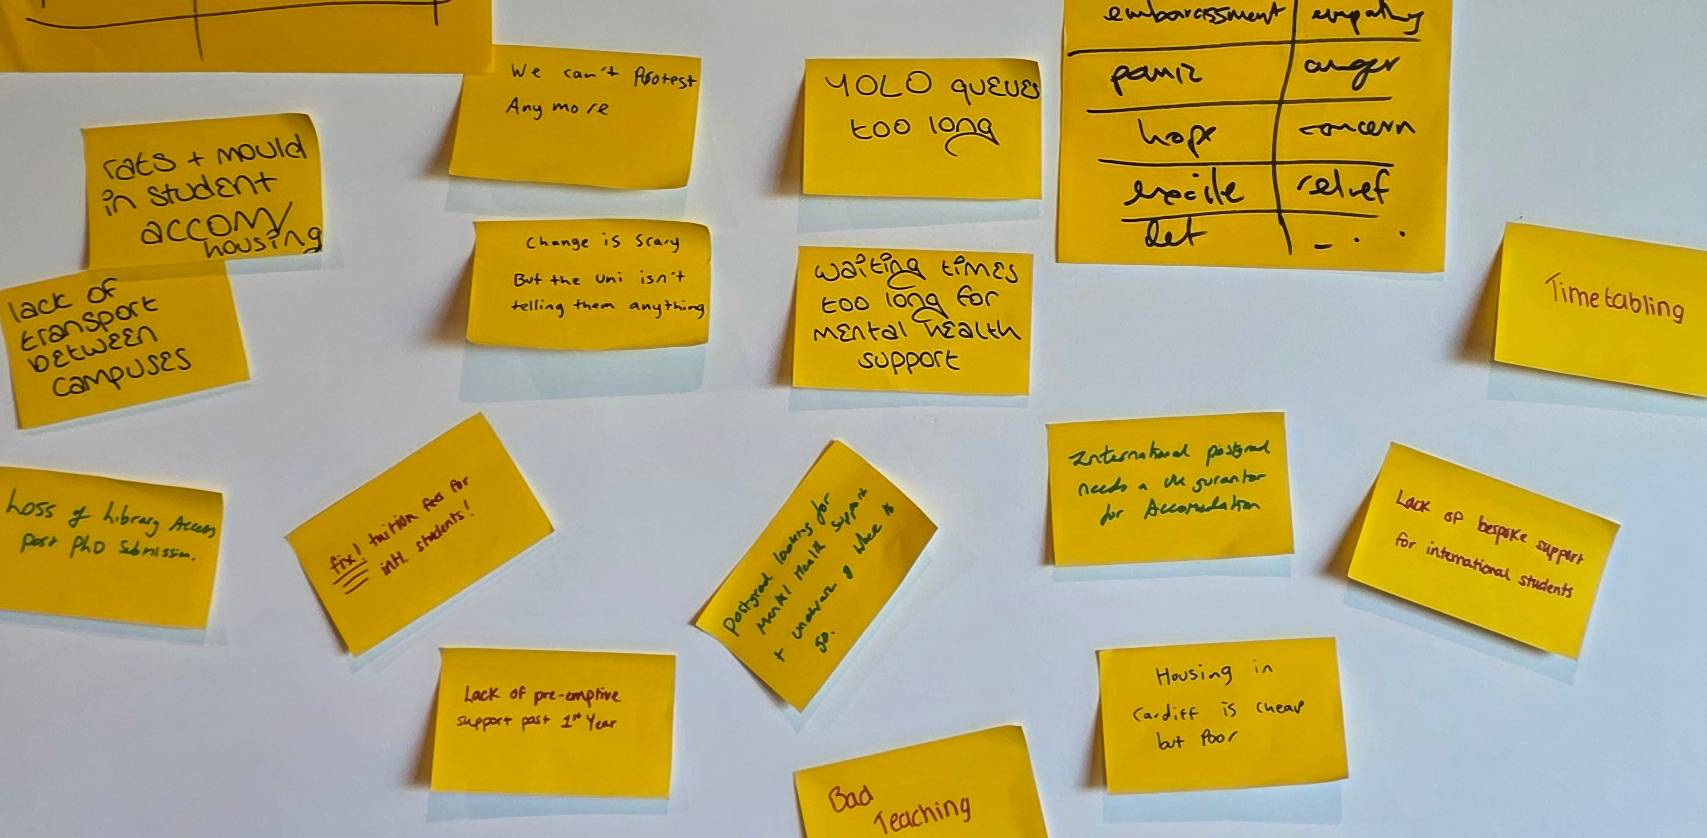 embarassment empathy
panic anger
hope concern
excite relief
det - . .
We can't Protest
Any more
YOLO queues
too long
rats + mould
in student
accom/
housing
Change is scary
But the uni isn't
telling them anything
waiting times
too long for
mental health
support
Timetabling
lack of
transport
between
campuses
Loss of Library Access
post PhD Submission.
fix! tuition fees for
intl. students!
Postgrad looking for
Mental Health Support
+ unaware of where to
go.
International postgrad
needs a UK gurantor
for Accomodation
Lack of bespoke support
for international students
Lack of pre-emptive
support past 1st Year
Housing in
Cardiff is cheap
but Poor
Bad
Teaching